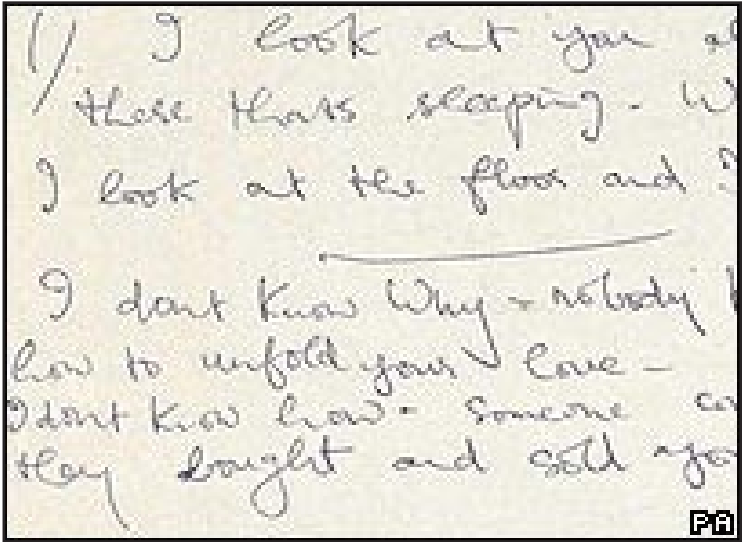 1) I look at you al
there thats sleeping - W
I look at the floor and I
I dont know Why - nobody t
how to unfold your love -
I dont know how - someone con
they bought and sold you
PA